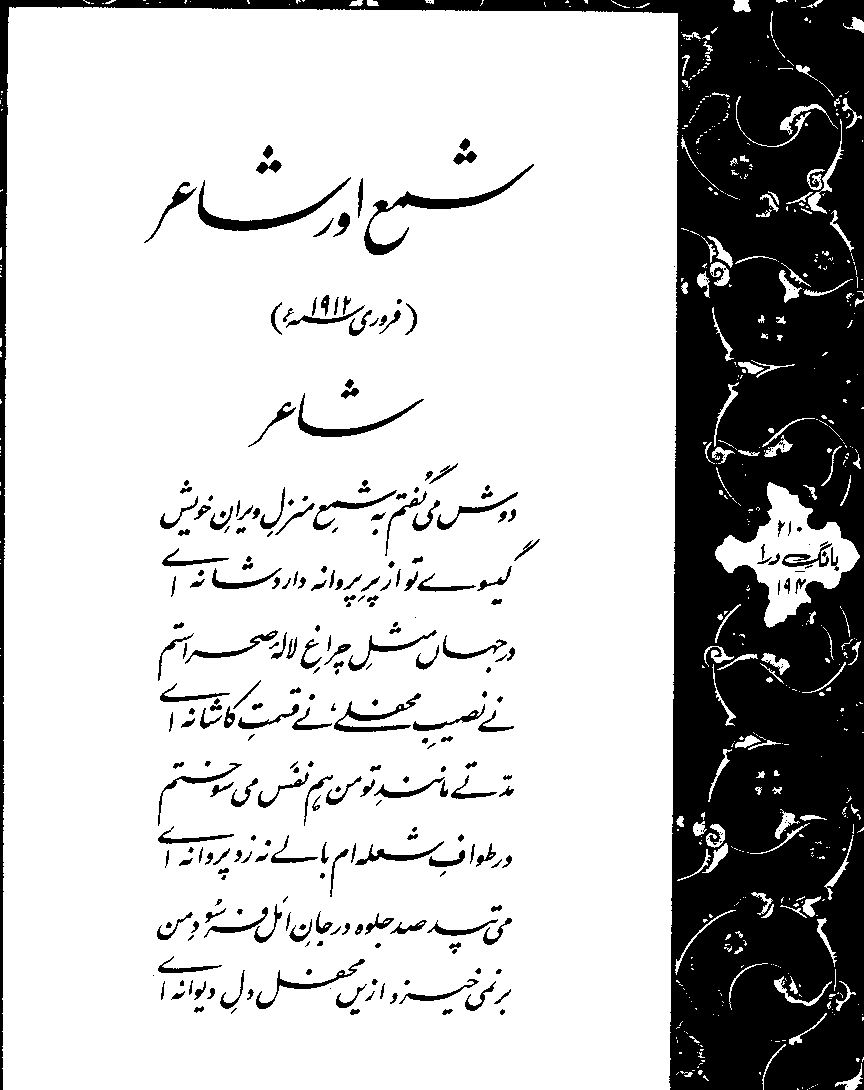 شمع اور شاعر
(فروری ۱۹۱۲ء)
شاعر
دوش می گُفتم بہ شمعِ منزلِ ویرانِ خویش
گیسوے تو از پرِ پروانہ دارد شانہ اے
درجہاں مثلِ چراغِ لالۂ صحراستم
نے نصیبِ محفلے، نے قسمتِ کاشانہ اے
مدّتے مانندِ تو من ہم نفَس می سوختم
در طوافِ شعلہ ام بالے نہ زد پروانہ اے
می تپد صد جلوہ در جانِ اَمَل فرسُودِ من
بر نمی خیزد ازیں محفل دلِ دیوانہ اے
۲۱۰
بانگِ درا
۱۹۴